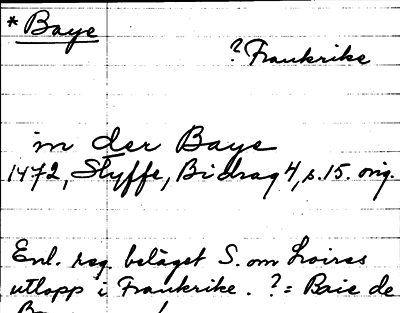 * Baye
? Frankrike
in der Baye
1472, Styffe, Bidrag 4, s. 15. orig.
Enl. reg. beläget S. om Loires
utlopp i Frankrike. ? = Baie de